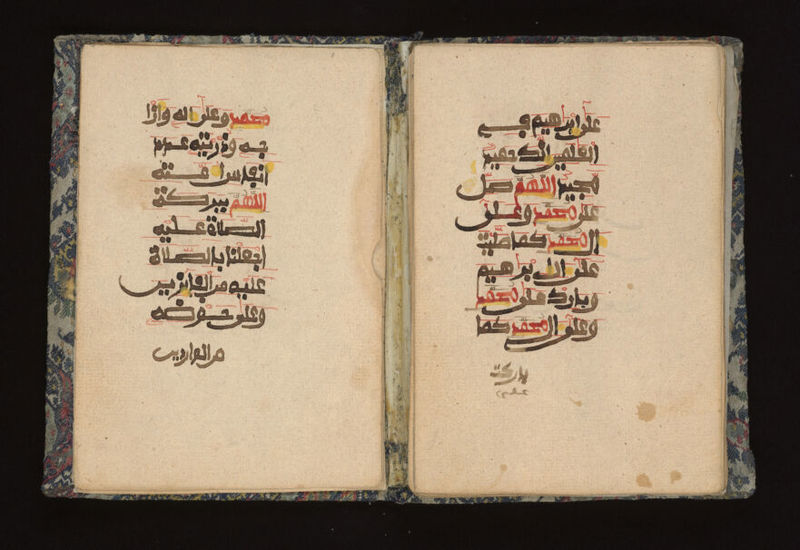 على ابرهيم في
العلمين انك حميد
مجيد اللهم صل
على محمد وعلى
ال محمد كما صليت
على ال ابرهيم
وبارك على محمد
وعلى ال محمد كما
باركت
على
محمد وعلى اله وازوا
جه وذريته عدد
انفاس امته
اللهم ببركة
الصلاة عليه
اجعلنا بالصلاة
عليه من الفايزين
وعلى حوضه
من الواردين